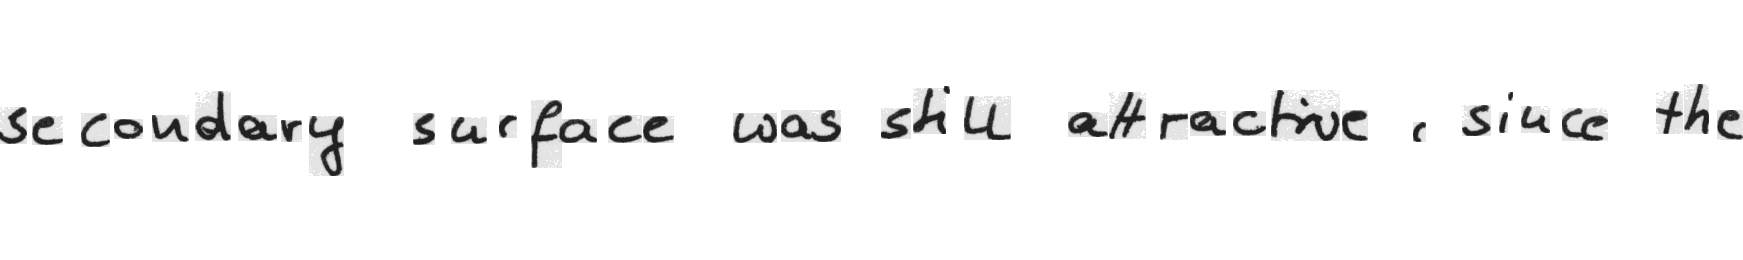 secondary surface was still attractive , since the